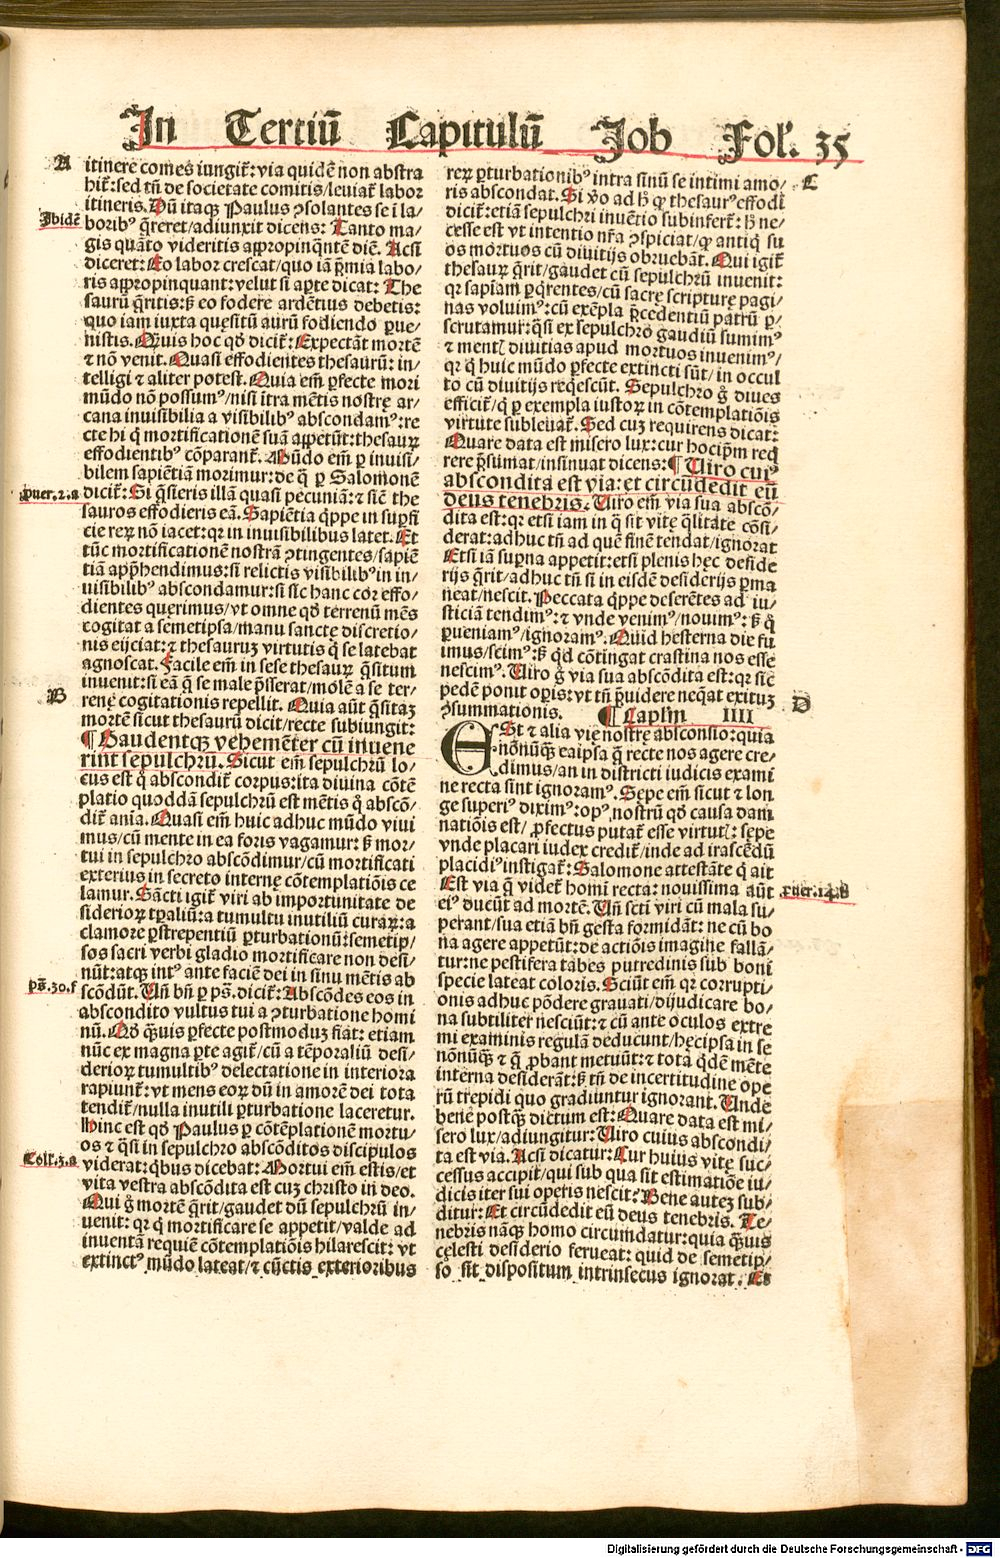 In Tertiū Capitulū Job Fol. 35
A
itinere comes iungit̄: via quidē non abstra
hit̄: sed tn̄ de societate comitis/leuiat̄ labor
itineris. Dū itaqꝫ Paulus ꝯsolantes se ī la-
Ibidē
boribꝰ q̄reret/adiunxit dicens: Tanto ma-
gis quāto videritis appropinq̄ntē diē. Acsi
diceret: Eo labor crescat/quo iā p̄mia labo/
ris appropinquant: velut si aꝑte dicat: The
saurū q̄ritis: sꝫ eo fodere ardētius debetis:
quo iam iuxta quęsitū aurū fodiendo ꝑue/
nistis. Quis hoc qd̄ dicit̄: Expectāt mortē
⁊ nō venit. Quasi effodientes thesaurū: in-
telligi ⁊ aliter potest. Quia em̄ ꝑfecte mori
mūdo nō possumꝰ/nisi ītra mētis nostrę ar/
cana inuisibilia a visibilibꝰ abscondamꝰ: re
cte hi q̄ mortificationē suā appetūt: thesaurꝝ
effodientibꝰ cōparant̄. Mūdo em̄ ꝑ inuisi/
bilem sapiētiā morimur: de q̄ ꝑ Salomonē
ꝓuer. 2. a
dicit̄: Si q̄sieris illā quasi pecuniā: ⁊ sic̄ the
sauros effodieris eā. Sapiētia q̄ppe in suꝑfi
cie reꝝ nō iacet: qꝛ in inuisibilibus latet. Et
tūc mortificationē nostrā ꝯtingentes/sapiē
tiā app̄hendimus: si relictis visibilibꝰ in in/
uisibilibꝰ abscondamur: si sic hanc cor effo/
dientes querimus/vt omne qd̄ terrenū mēs
cogitat a semetipsa/manu sancte discretio/
nis eijciat: ⁊ thesauruꝫ virtutis q̄ se latebat
agnoscat. Facile em̄ in sese thesaurꝝ q̄situm
inuenit: si eā q̄ se male p̄sserat/molē a se ter/
B
renę cogitationis repellit. Quia aūt q̄sitaꝫ
mortē sicut thesaurū dicit/recte subiungit:
¶ Gaudentqꝫ vehemēter cū inuene
rint sepulchrū. Sicut em̄ sepulchrū lo/
cus est q̊ abscondit̄ corpus: ita diuina cōtē
platio quoddā sepulchrū est mētis q̊ abscō/
dit̄ aīa. Quasi em̄ huic adhuc mūdo viui
mus/cū mente in ea foris vagamur: sꝫ mor/
tui in sepulchro abscōdimur/cū mortificati
exterius in secreto internę cōtemplatiōis ce
lamur. Sācti igit̄ viri ab importunitate de
siderioꝝ tꝑaliū: a tumultu inutiliū curaꝝ: a
clamore ꝑstrepentiū ꝑturbationū: semetip/
sos sacri verbi gladio mortificare non desi-
nūt: atqꝫ intꝰ ante faciē dei in sinu mētis ab
ps̄. 30. f
scōdūt. Vn̄ bn̄ ꝑ ps̄. dicit̄: Abscōdes eos in
abscondito vultus tui a ꝯturbatione homi
nū. Qd̄ q̄uis ꝑfecte postmoduꝫ fiat: etiam
nūc ex magna ꝑte agit̄/cū a tēporaliū desi/
derioꝝ tumultibꝰ delectatione in interiora
rapiunt̄: vt mens eoꝝ dū in amorē dei tota
tendit̄/nulla inutili ꝑturbatione laceretur.
Hinc est qd̄ Paulus ꝑ cōtēplationē mortu/
os ⁊ q̄si in sepulchro abscōditos discipulos
Coll. 3. a
viderat: q̄bus dicebat: Mortui em̄ estis/et
vita vestra abscōdita est cuꝫ christo in deo.
Qui ḡ mortē q̄rit/gaudet dū sepulchrū in/
uenit: qꝛ q̄ mortificare se appetit/valde ad
inuentā requiē cōtemplatiōis hilarescit: vt
extinctꝰ mūdo lateat/⁊ cūctis exterioribus
reꝝ ꝑturbationibꝰ intra sinū se intimi amo/
C
ris abscondat. Si v̊o ad h̄ qd̄ thesaurꝰ effodi
dicit̄: etiā sepulchri inuētio subinfert̄: h̄ ne/
cesse est vt intentio nr̄a ꝯspiciat/qd̄ antiq̄ su
os mortuos cū diuitijs obruebāt. Qui igit̄
thesaurꝝ q̄rit/gaudet cū sepulchrū inuenit:
qꝛ sapiam ꝑq̄rentes/cū sacrę scripturę pagi/
nas voluimꝰ: cū exēpla p̄cedentiū patrū ꝑ/
scrutamur: q̄si ex sepulchro gaudiū sumimꝰ
⁊ mentꝭ diuitias apud mortuos inuenimꝰ/
qꝛ q̄ huic mūdo ꝑfecte extincti sūt/in occul
to cū diuitijs req̄escūt. Sepulchro ḡ diues
efficit̄/q̄ ꝑ exempla iustoꝝ in cōtemplatiōis
virtute subleuat̄. Sed cuꝫ requirens dicat:
Quare data est misero lux: cur hocip̄m req̄
rere p̄sumat/insinuat dicens: ¶ Uiro cuiꝰ
abscondita est via: et circūdedit eū
deus tenebris. Uiro em̄ via sua abscō/
dita est: qꝛ etsi iam in q̄ sit vitę q̄litate cōsi/
derat: adhuc tn̄ ad quē finē tendat/ignorat
Etsi iā suꝑna appetit: etsi plenis hęc deside
rijs q̄rit/adhuc tn̄ si in eisdē desiderijs ꝑma
neat/nescit. Peccata q̄ppe deserētes ad iu/
sticiā tendimꝰ: ⁊ vnde venimꝰ/nouimꝰ: sꝫ q̊
ꝑueniamꝰ/ignoramꝰ. Quid hesterna die fu
imus/scimꝰ: sꝫ qd̄ cōtingat crastina nos esse
nescimꝰ. Uiro ḡ via sua abscōdita est: qꝛ sic
pedē ponit oꝑis: vt tn̄ p̄uidere neq̄at exituꝫ
D
ꝯsummationis. ¶ Capl̄m IIII
Est ⁊ alia vię nostrę absconsio: quia
nōnūqꝫ ea ipsa q̄ recte nos agere cre/
dimus/an in districti iudicis exami
ne recta sint ignoramꝰ. Sepe em̄ sicut ⁊ lon
ge superiꝰ diximꝰ: opꝰ nostrū qd̄ causa dam
natiōis est/ ꝓfectus putat̄ esse virtutꝭ: sepe
vnde placari iudex credit̄/inde ad irascēdū
placidꝰ instigat̄: Salomone attestāte q̄ ait
Est via q̄ videt̄ homī recta: nouissima aūt
ꝓuer. 14. B
eiꝰ ducūt ad mortē. Vn̄ scti viri cū mala su/
perant/sua etiā bn̄ gesta formidāt: ne cū bo
na agere appetūt: de actiōis imagine fallā/
tur: ne pestifera tabes putredinis sub boni
specie lateat coloris. Sciūt em̄ qꝛ corrupti/
onis adhuc pōdere grauati/dijudicare bo/
na subtiliter nesciūt: ⁊ cū ante oculos extre
mi examinis regulā deducunt/hęc ipsa in se
nōnūqꝫ ⁊ q̄ ꝓbant metuūt: ⁊ tota q̄dē mēte
interna desiderāt: sꝫ tn̄ de incertitudine ope
rū trepidi quo gradiuntur ignorant. Unde
bene postqꝫ dictum est: Quare data est mi/
sero lux/adiungitur: Uiro cuius abscondi/
ta est via. Acsi dicatur: Cur huius vitę suc/
cessus accipit/qui sub qua sit estimatiōe iu/
dicis iter sui operis nescit? Bene auteꝫ sub/
ditur: Et circūdedit eū deus tenebris. Te/
nebris nāqꝫ homo circumdatur: quia q̄uis
cęlesti desiderio ferueat: quid de semetip/
so sit dispositum intrinsecus ignorat. Et
Digitalisierung gefördert durch die Deutsche Forschungsgemeinschaft - DFG